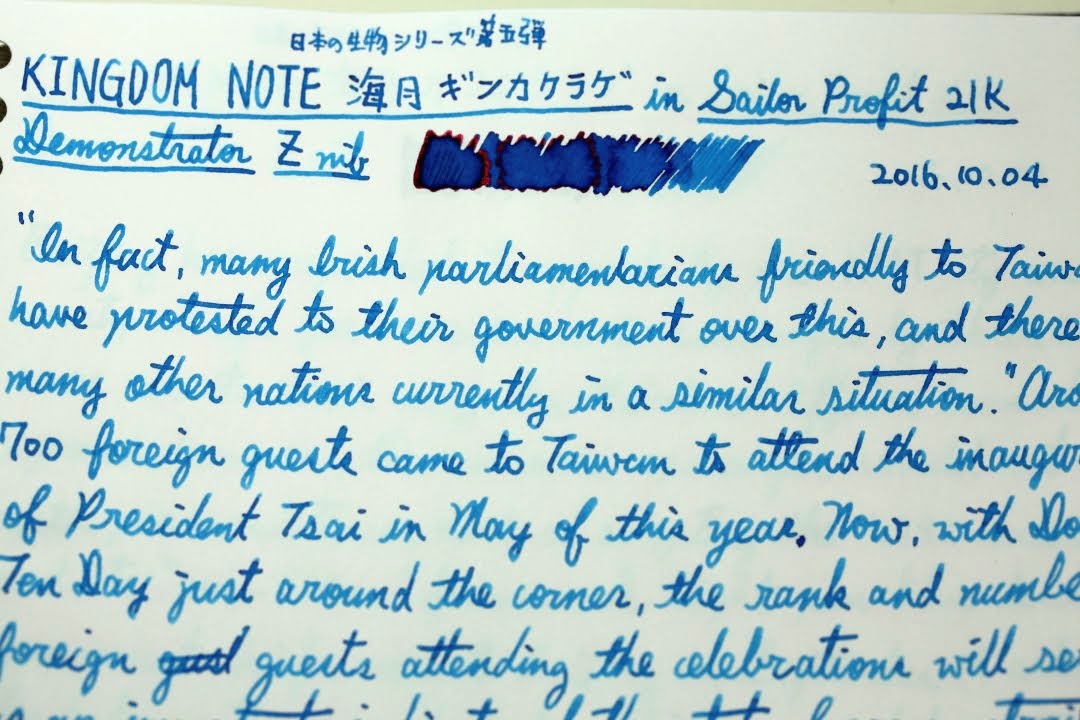 日本の生物シリーズ第五弾
KINGDOM NOTE 海月 ギンカクラゲ in Sailor Profit 21K
Demonstrator Z nib
2016.10.04
"In fact, many Irish parliamentarians friendly to Taiwa
have protested to their government over this, and there
many other nations currently in a similar situation." Aro
700 foreign guests came to Taiwan to attend the inaugur
of President Tsai in May of this year. Now, with Do
Ten Day just around the corner, the rank and numbe
foreign guest guests attending the celebrations will se